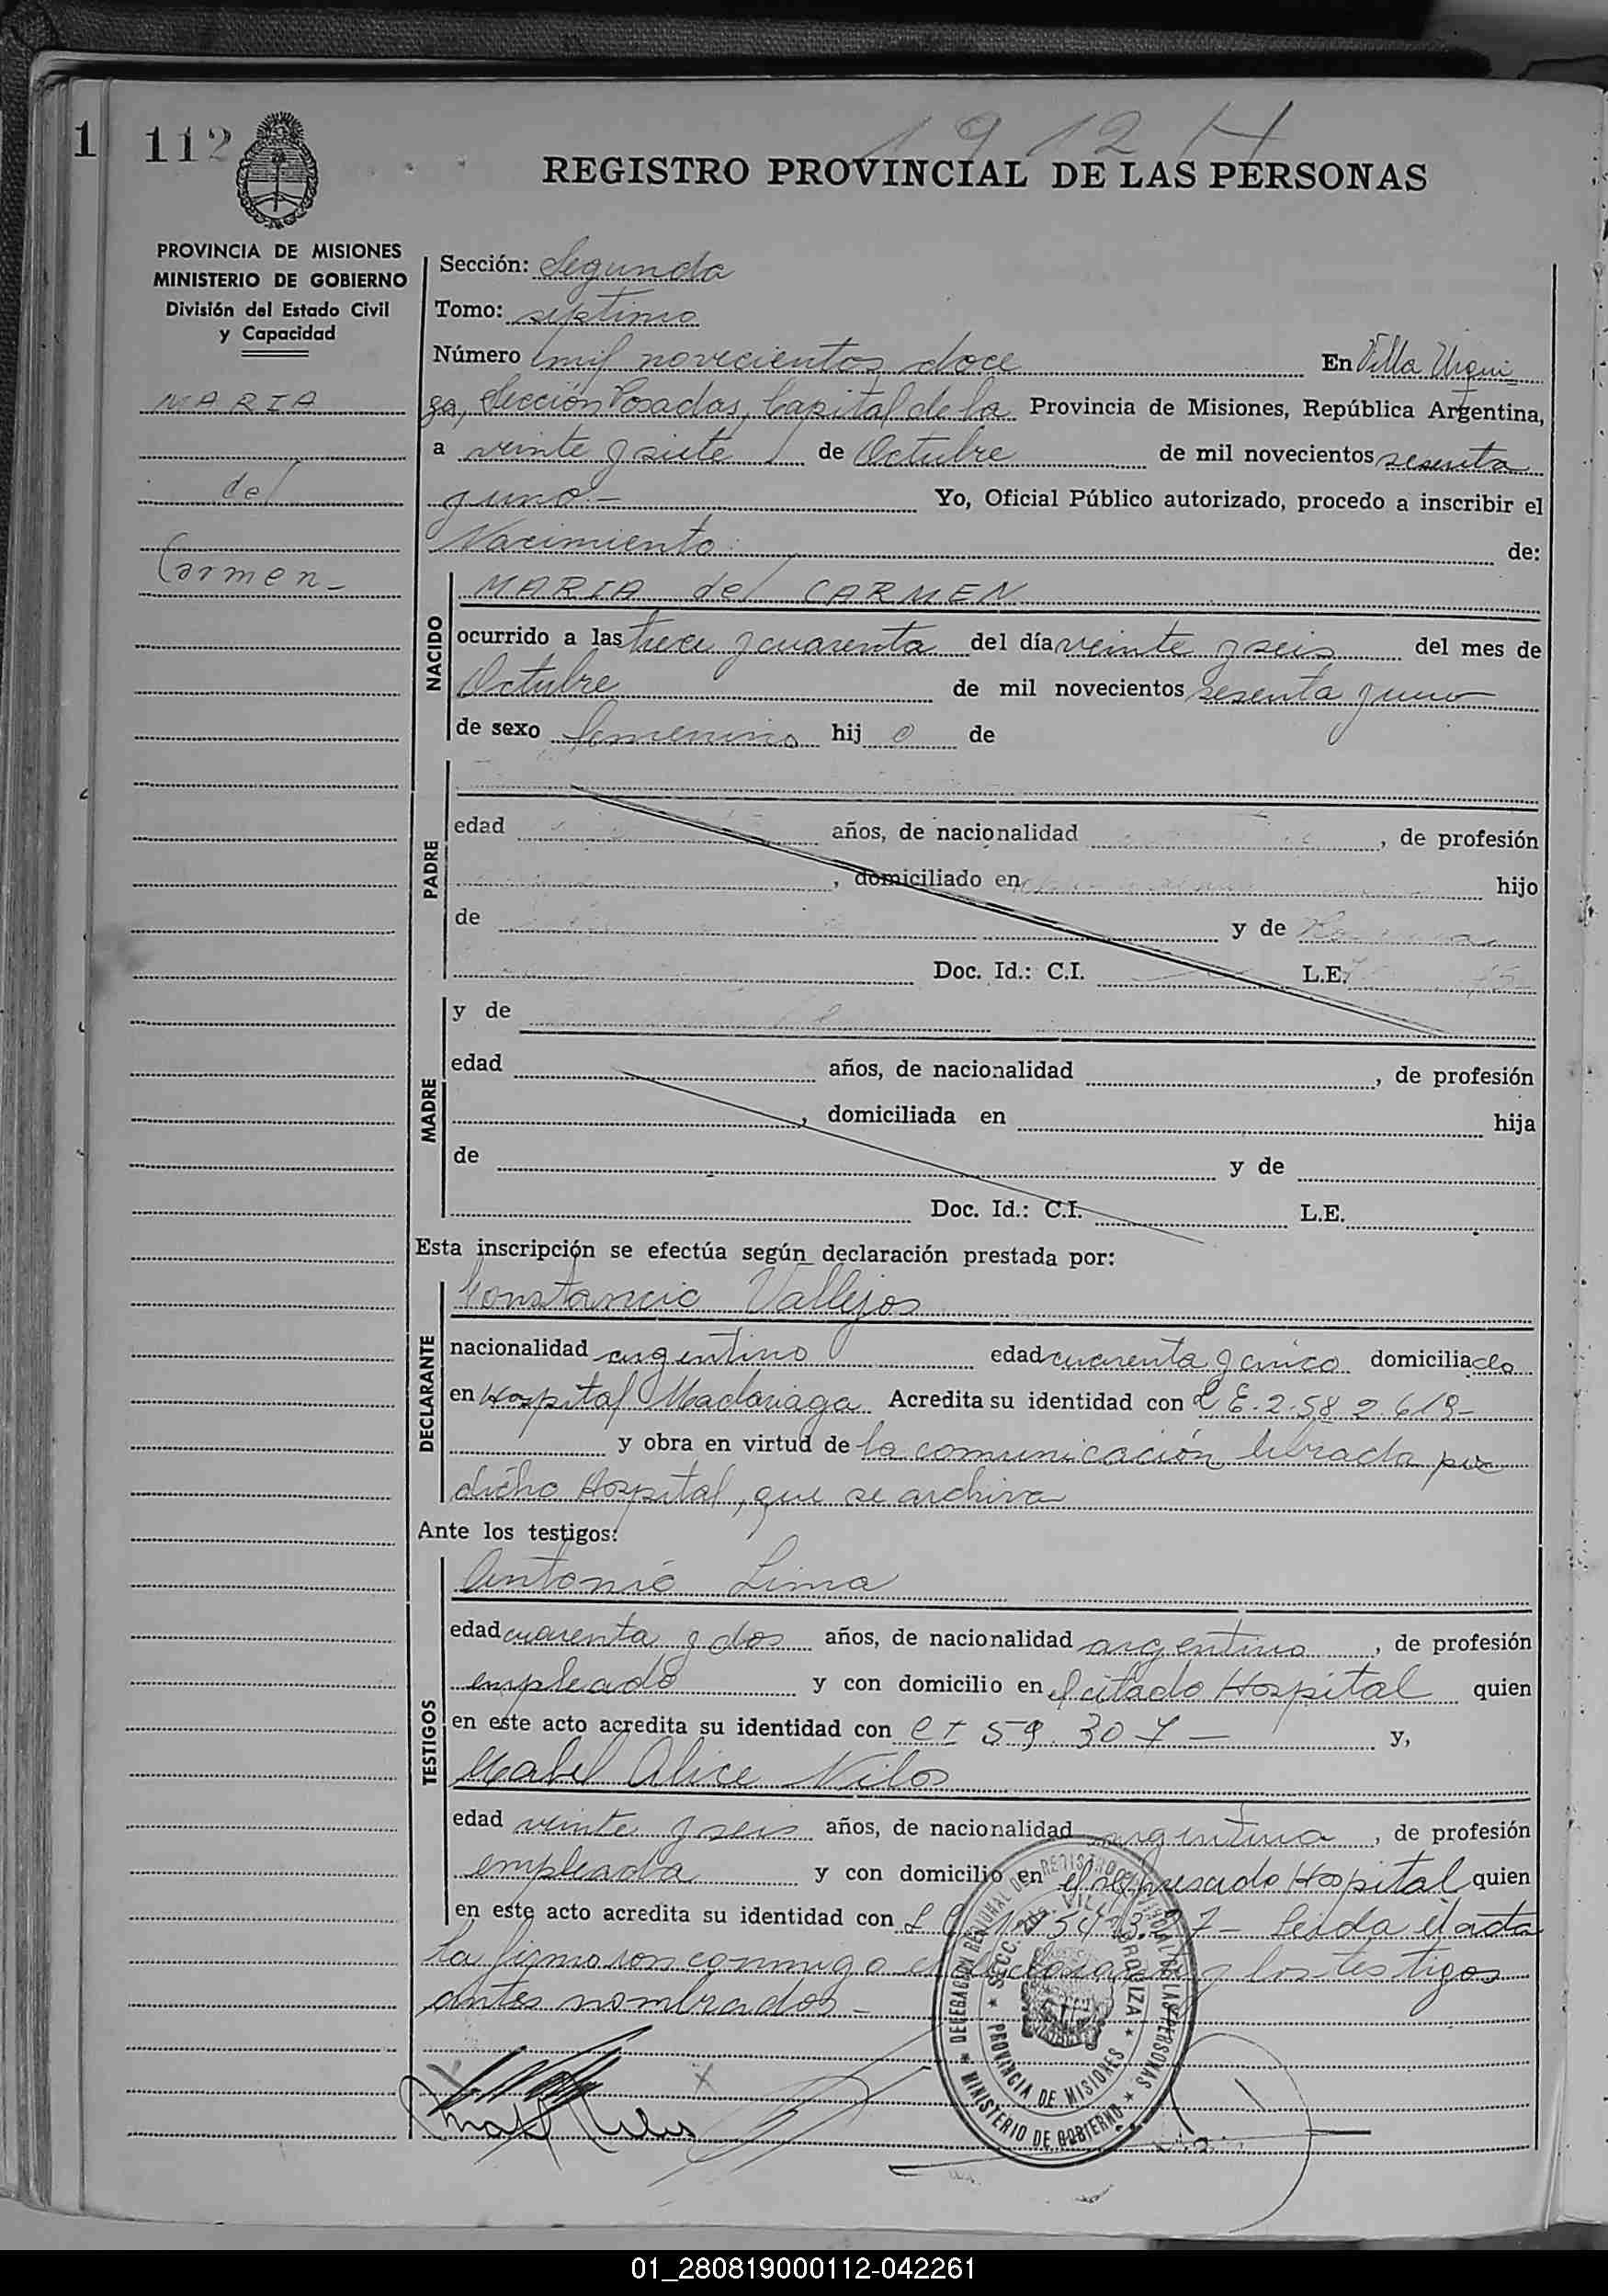 1
112
1912 H
REGISTRO PROVINCIAL DE LAS PERSONAS
PROVINCIA DE MISIONES
MINISTERIO DE GOBIERNO
División del Estado Civil
y Capacidad
MARIA
del
Carmen-
Sección: Segunda
Tomo: septimo
Número mil novecientos doce En Villa Urqui
za, Sección Posadas, Capital de la Provincia de Misiones, República Argentina,
a veinte y siete de Octubre de mil novecientos sesenta
y uno.- Yo, Oficial Público autorizado, procedo a inscribir el
Nacimiento de:
NACIDO
MARIA del CARMEN
ocurrido a las trece y cuarenta del día veinte y seis del mes de
Octubre de mil novecientos sesenta y uno
de sexo femenino hij o de
PADRE
edad años, de nacionalidad , de profesión
, domiciliado en hijo
de y de
Doc. Id.: C.I. L.E.
MADRE
y de
edad años, de nacionalidad , de profesión
, domiciliada en hija
de y de
Doc. Id.: C.I. L.E.
Esta inscripción se efectúa según declaración prestada por:
DECLARANTE
Constancio Vallejos
nacionalidad argentino edad cuarenta y cinco domiciliado
en Hospital Madariaga Acredita su identidad con L E. 2.582.619-
y obra en virtud de la comunicación librada por
dicho Hospital, que se archiva
Ante los testigos:
TESTIGOS
Antonio Lima
edad cuarenta y dos años, de nacionalidad argentino , de profesión
empleado y con domicilio en el citado Hospital quien
en este acto acredita su identidad con C I 59.307- y,
Mabel Alice Nilos
edad veinte y seis años, de nacionalidad argentina , de profesión
empleada y con domicilio en el expresado Hospital quien
en este acto acredita su identidad con L C Leida el acta
la firmaron conmigo el declarante y los testigos
antes nombrados-
DELEGACION REGIONAL DEL REGISTRO PROVINCIAL DE LAS PERSONAS
MINISTERIO DE GOBIERNO
SECC. 2da. VILLA URQUIZA
PROVINCIA DE MISIONES
01_280819000112-042261